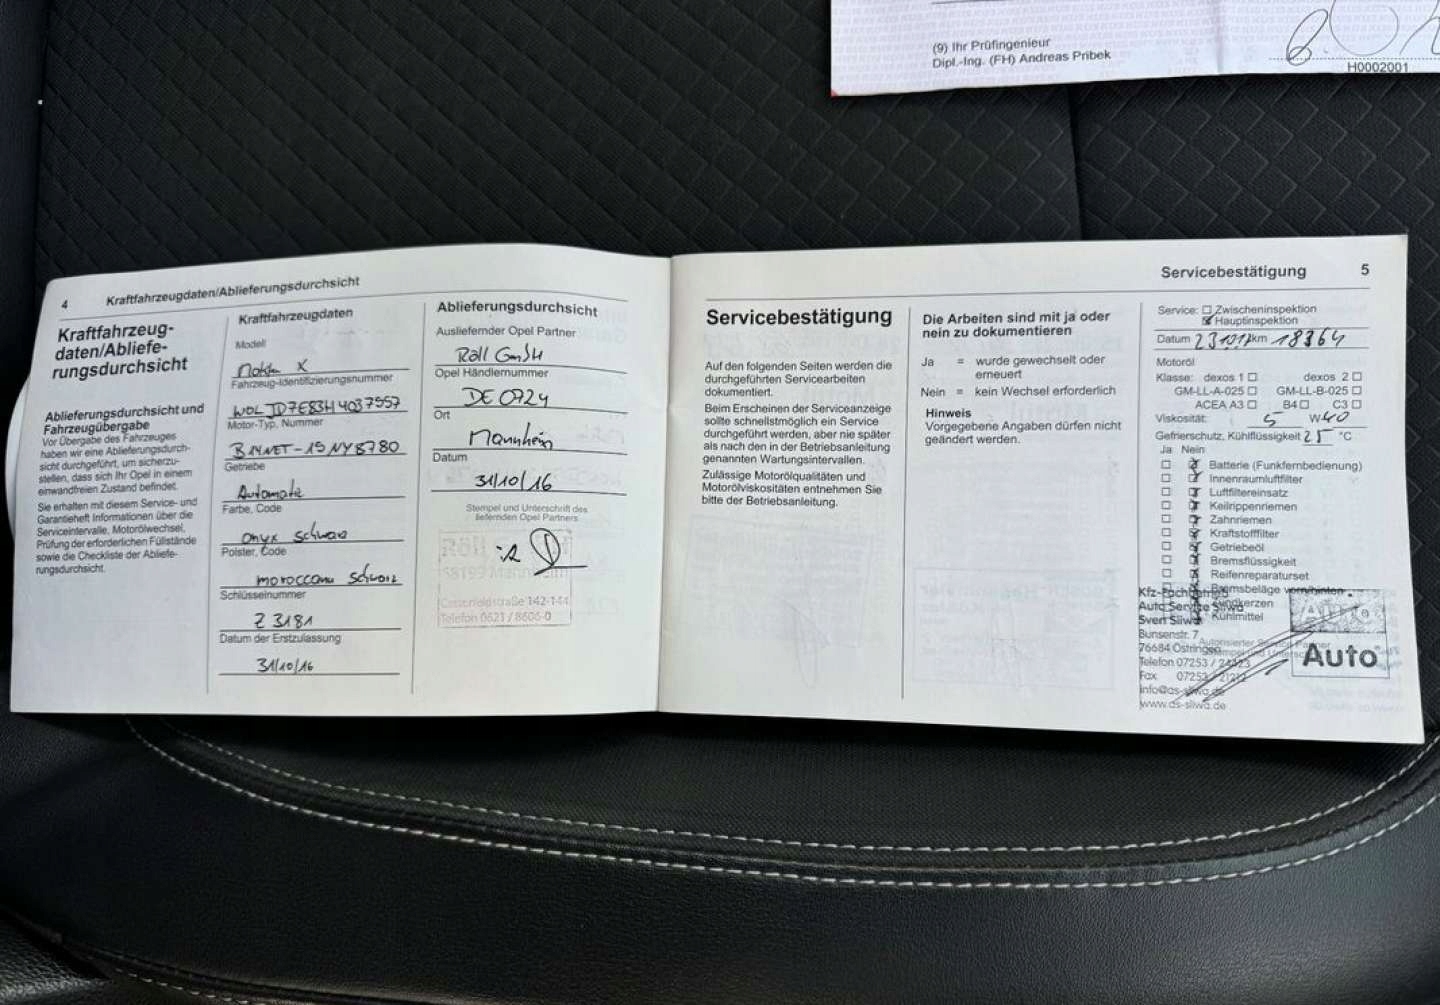 (9) Ihr Prüfingenieur
Dipl.-Ing. (FH) Andreas Pribek
H0002001
4 Kraftfahrzeugdaten/Ablieferungsdurchsicht
Kraftfahrzeug-
daten/Abliefe-
rungsdurchsicht
Ablieferungsdurchsicht und
Fahrzeugübergabe
Vor Übergabe des Fahrzeuges
haben wir eine Ablieferungsdurch-
sicht durchgeführt, um sicherzu-
stellen, dass sich Ihr Opel in einem
einwandfreien Zustand befindet.
Sie erhalten mit diesem Service- und
Garantieheft Informationen über die
Serviceintervalle, Motorölwechsel,
Prüfung der erforderlichen Füllstände
sowie die Checkliste der Abliefe-
rungsdurchsicht.
Kraftfahrzeugdaten
Modell
Mokka X
Fahrzeug-Identifizierungsnummer
W0LJD7E83H4037557
Motor-Typ, Nummer
B14NET-15NY8780
Getriebe
Automatic
Farbe, Code
Onyx Schwarz
Polster, Code
Moroccana Schwarz
Schlüsselnummer
Z 3181
Datum der Erstzulassung
31/10/16
Ablieferungsdurchsicht
Ausliefernder Opel Partner
Röll GmbH
Opel Händlernummer
DE 0724
Ort
Mannheim
Datum
31/10/16
Stempel und Unterschrift des
liefernden Opel Partners
Casterfeldstraße 142-144
Telefon 0621 / 8606-0
Servicebestätigung 5
Servicebestätigung
Auf den folgenden Seiten werden die
durchgeführten Servicearbeiten
dokumentiert.
Beim Erscheinen der Serviceanzeige
sollte schnellstmöglich ein Service
durchgeführt werden, aber nie später
als nach den in der Betriebsanleitung
genannten Wartungsintervallen.
Zulässige Motorölqualitäten und
Motorölviskositäten entnehmen Sie
bitte der Betriebsanleitung.
Die Arbeiten sind mit ja oder
nein zu dokumentieren
Ja = wurde gewechselt oder
erneuert
Nein = kein Wechsel erforderlich
Hinweis
Vorgegebene Angaben dürfen nicht
geändert werden.
Service: Zwischeninspektion
Hauptinspektion
Datum 231017 km 18364
Motoröl
Klasse: dexos 1 dexos 2
GM-LL-A-025 GM-LL-B-025
ACEA A3 B4 C3
Viskosität: 5 W 40
Gefrierschutz, Kühlflüssigkeit 25 °C
Ja Nein
Batterie (Funkfernbedienung)
Innenraumluftfilter
Luftfiltereinsatz
Keilrippenriemen
Zahnriemen
Kraftstofffilter
Getriebeöl
Bremsflüssigkeit
Reifenreparaturset
Bremsbeläge vorn/hinten
Zündkerzen
Kühlmittel
Kfz-Fachbetrieb
Auto Service Sliwa
Sven Sliwa
Bunsenstr. 7
76684 Östringen
Telefon 07253 /
Fax 07253 /
info@as-sliwa.de
www.as-sliwa.de
Auto